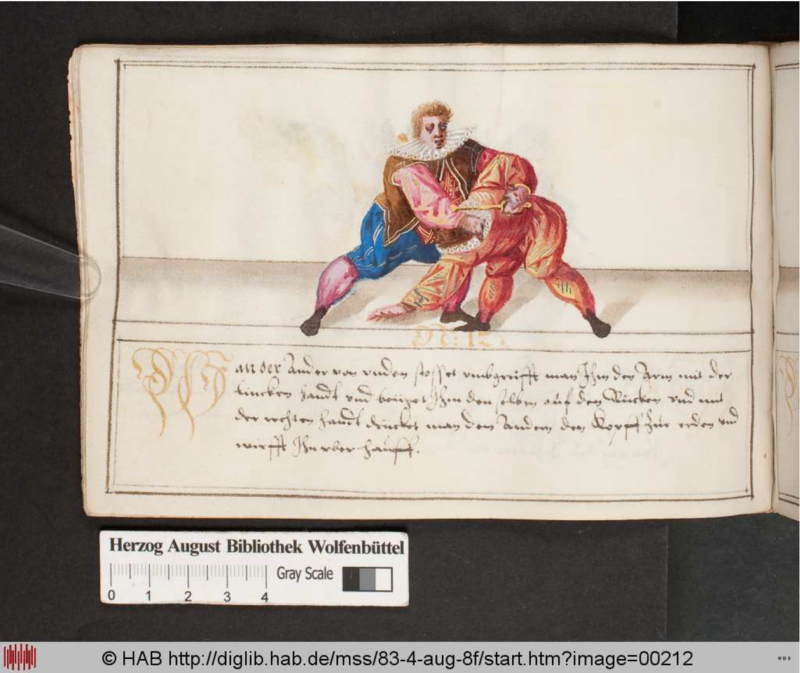 N: 12:
Wan der Ander von unden stosset umbgreifft man Ihm den Arm mit der
lincken handt und beuget Ihm den selben auf den Rücken und mit
der rechten handt drücket man dem Andern den Kopff zur erden und
wirfft Ihn uber hauff.
Herzog August Bibliothek Wolfenbüttel
Gray Scale
0 1 2 3 4
© HAB http://diglib.hab.de/mss/83-4-aug-8f/start.htm?image=00212